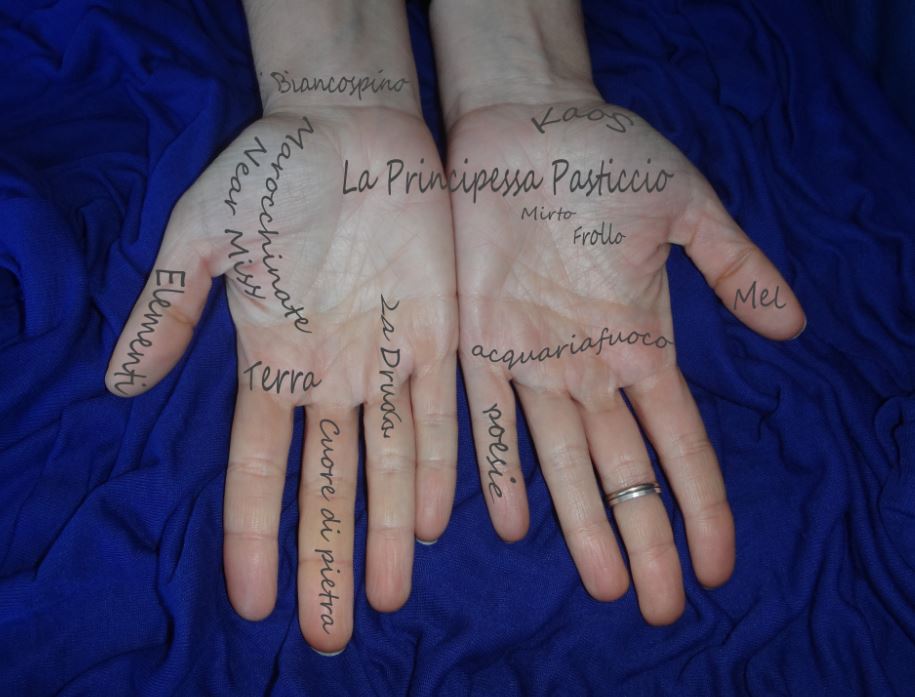 Biancospino
Kaos
Marocchinate
Near Miss
La Principessa Pasticcio
Mirto
Frollo
Elementi
Mel
La Druda
acquariafuoco
Terra
poesie
Cuore di pietra